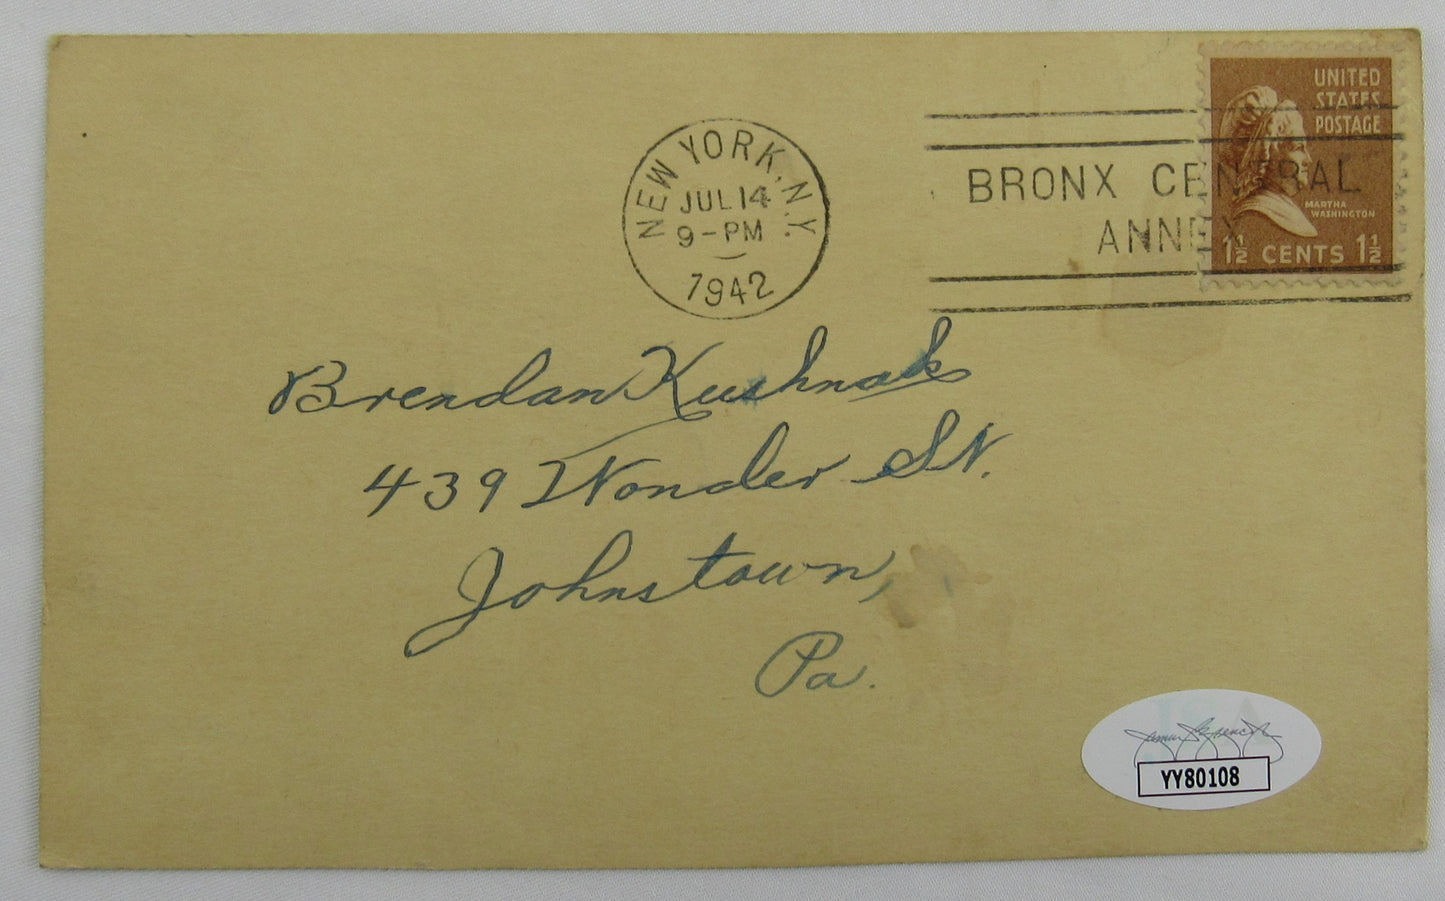 NEW YORK, N.Y.
JUL 14
9-PM
1942
BRONX CENTRAL
ANNEX
UNITED
STATES
POSTAGE
MARTHA
WASHINGTON
1½ CENTS 1½
Brendan Kushnak
439 Wonder St.
Johnstown,
Pa.
JSA
YY80108